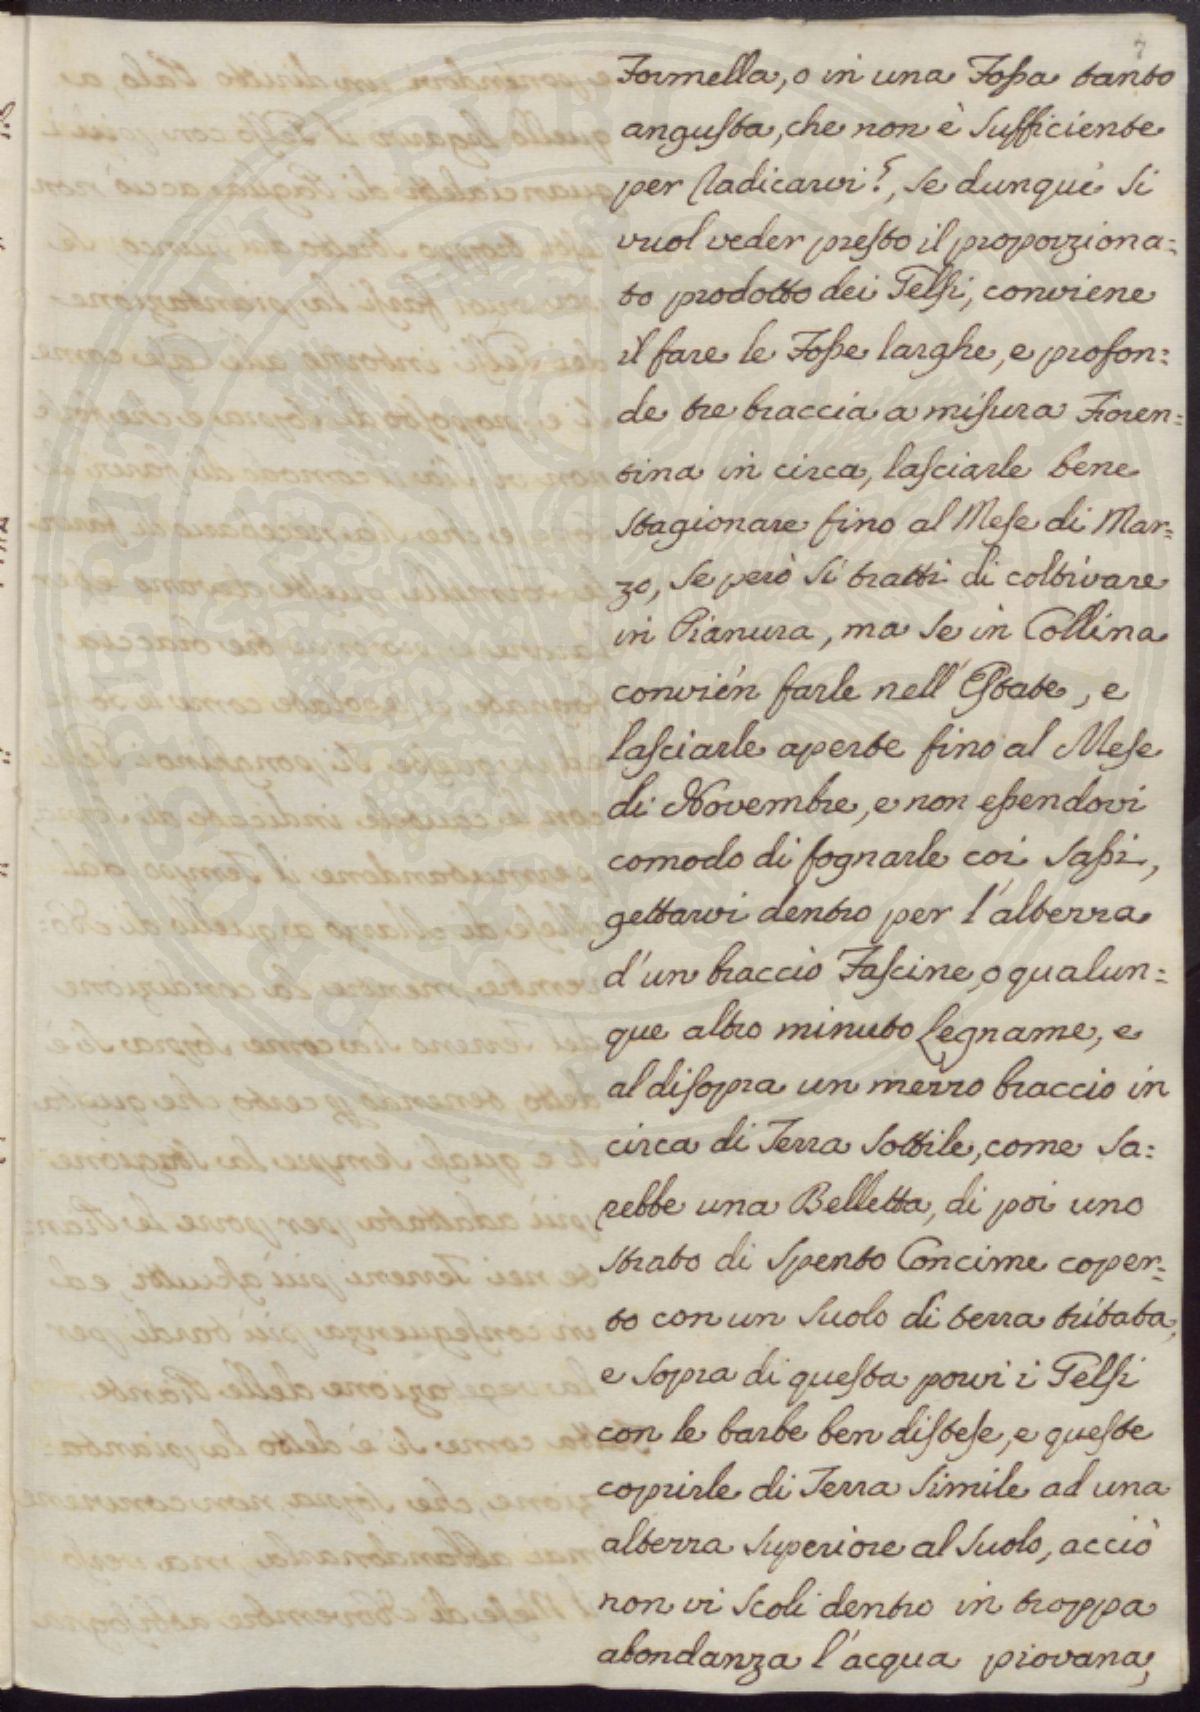 7
Formella, o in una Fossa tanto
angusta, che non è sufficiente
per radicarvi?, se dunque si
vuol veder presto il proporziona=
to prodotto dei Gelsi, conviene
il fare le Fosse larghe, e profon=
de tre braccia a misura Fioren=
tina in circa, lasciarle bene
stagionare fino al Mese di Mar=
zo, se però si tratti di coltivare
in Pianura, ma se in Collina
convièn farle nell'Estate, e
lasciarle aperte fino al Mese
di Novembre, e non essendovi
comodo di fognarle coi Sassi,
gettarvi dentro per l'altezza
d'un braccio Fascine, o qualun=
que altro minuto Legname, e
al disopra un mezzo braccio in
circa di Terra sottile, come sa=
rebbe una Belletta, di poi uno
strato di spento Concime coper=
to con un suolo di terra tritata,
e sopra di questa porvi i Gelsi
con le barbe ben distese, e queste
coprirle di Terra simile ad una
altezza superiore al suolo, acciò
non vi scoli dentro in troppa
abondanza l'acqua piovana,